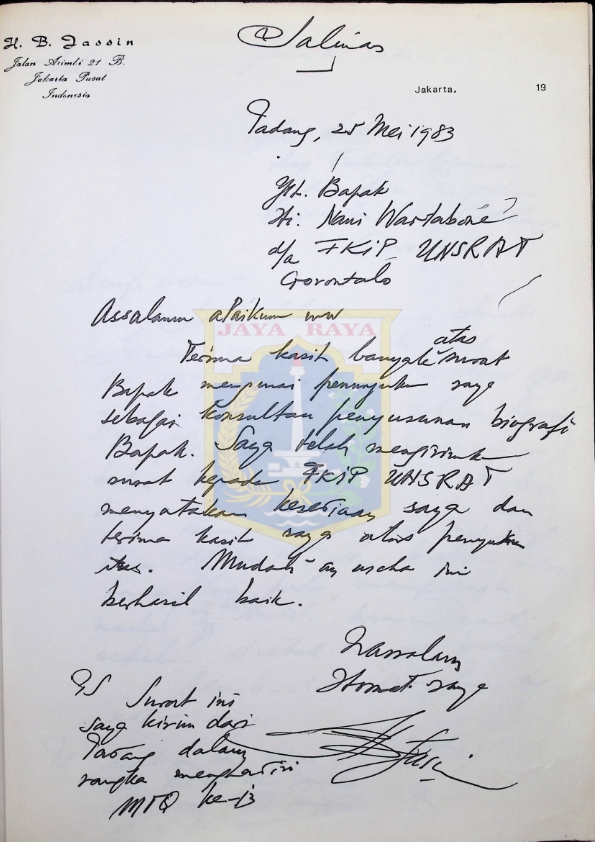 H. B. Jassin
Jalan Arimbi 21 B.
Jakarta Pusat
Indonesia
Salinan
Jakarta, 19
Padang, 25 Mei 1983
Yth. Bapak
Hi. Nani Wartabone
d/a FKIP UNSRAT
Gorontalo
Assalamu alaikum ww
JAYA RAYA
Terima kasih banyak atas surat
Bapak mengenai penunjukan saya
sebagai konsultan penyusunan biografi
Bapak. Saya telah mengirimkan
surat kepada FKIP UNSRAT
menyatakan kesediaan saya dan
terima kasih saya atas penunjukan
itu. Mudah-an usaha ini
berhasil baik.
Wassalam
Hormat saya
PS Surat ini
saya kirim dari
Padang dalam
rangka menghadiri
MTQ ke-13